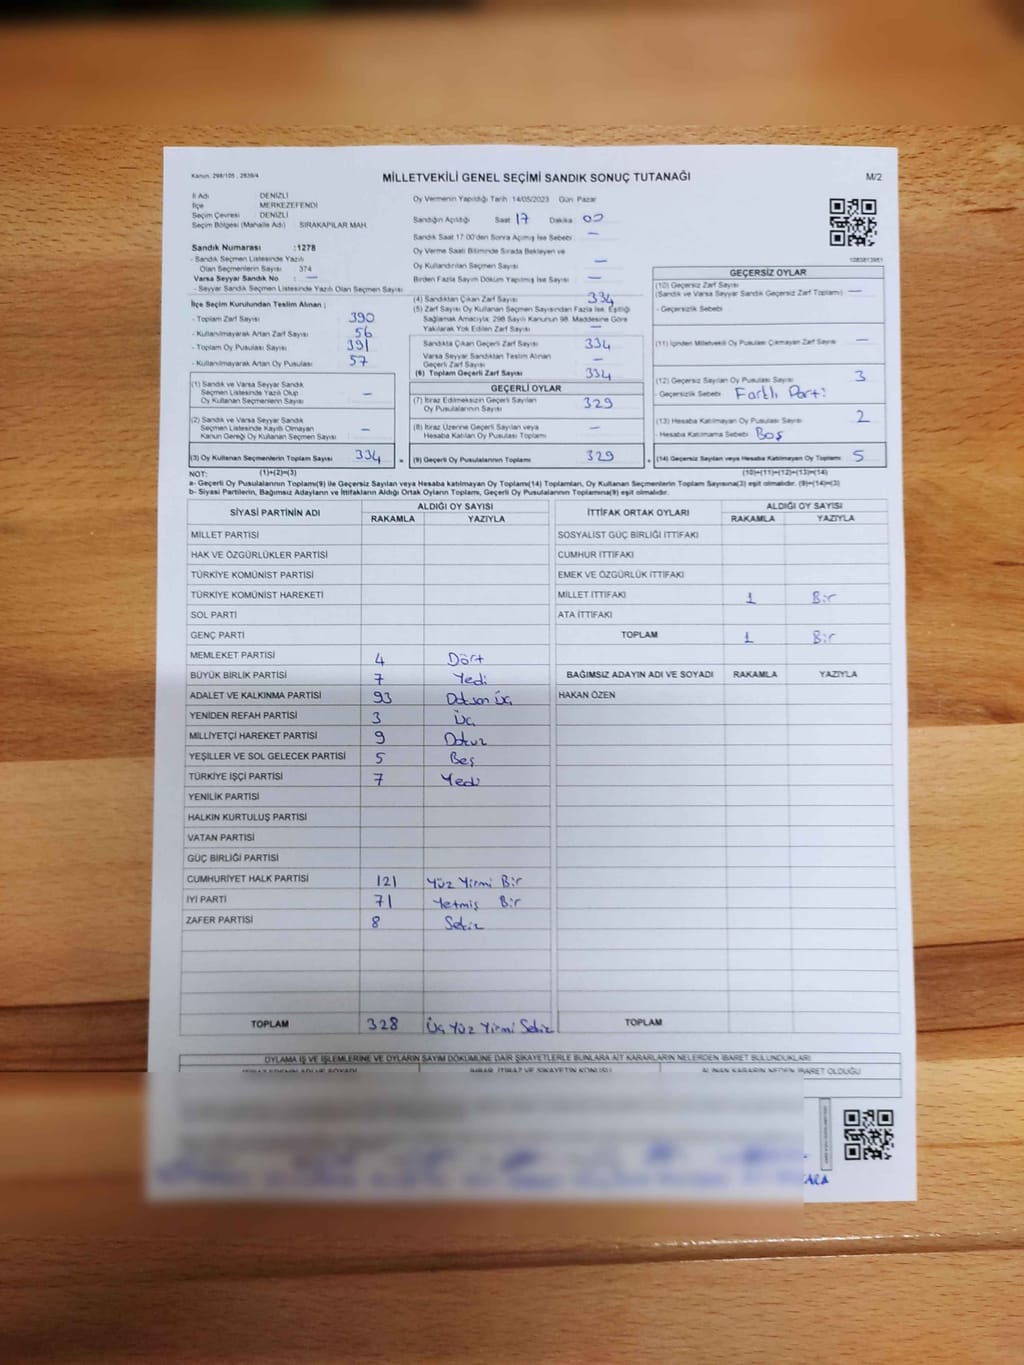 Kanun: 298/105 , 2839/4
MİLLETVEKİLİ GENEL SEÇİMİ SANDIK SONUÇ TUTANAĞI
M/2
İl Adı DENİZLİ
İlçe MERKEZEFENDİ
Seçim Çevresi DENİZLİ
Seçim Bölgesi (Mahalle Adı) SIRAKAPILAR MAH.
Sandık Numarası :1278
- Sandık Seçmen Listesinde Yazılı
Olan Seçmenlerin Sayısı 374
Varsa Seyyar Sandık No : —
- Seyyar Sandık Seçmen Listesinde Yazılı Olan Seçmen Sayısı
İlçe Seçim Kurulundan Teslim Alınan ;
- Toplam Zarf Sayısı 390
- Kullanılmayarak Artan Zarf Sayısı 56
- Toplam Oy Pusulası Sayısı 391
- Kullanılmayarak Artan Oy Pusulası 57
(1) Sandık ve Varsa Seyyar Sandık
Seçmen Listesinde Yazılı Olup
Oy Kullanan Seçmenlerin Sayısı —
(2) Sandık ve Varsa Seyyar Sandık
Seçmen Listesinde Kayıtlı Olmayan
Kanun Gereği Oy Kullanan Seçmen Sayısı —
(3) Oy Kullanan Seçmenlerin Toplam Sayısı 334
Oy Vermenin Yapıldığı Tarih 14/05/2023 Gün Pazar
Sandığın Açıldığı Saat 17 Dakika 00
Sandık Saat 17:00'den Sonra Açılmış İse Sebebi —
Oy Verme Saati Bitiminde Sırada Bekleyen ve
Oy Kullandırılan Seçmen Sayısı —
Birden Fazla Sayım Döküm Yapılmış İse Sayısı —
(4) Sandıktan Çıkan Zarf Sayısı 334
(5) Zarf Sayısı Oy Kullanan Seçmen Sayısından Fazla İse, Eşitliği
Sağlamak Amacıyla; 298 Sayılı Kanunun 98. Maddesine Göre
Yakılarak Yok Edilen Zarf Sayısı —
Sandıkta Çıkan Geçerli Zarf Sayısı 334
Varsa Seyyar Sandıktan Teslim Alınan
Geçerli Zarf Sayısı —
(6) Toplam Geçerli Zarf Sayısı 334
GEÇERLİ OYLAR
(7) İtiraz Edilmeksizin Geçerli Sayılan
Oy Pusulalarının Sayısı 329
(8) İtiraz Üzerine Geçerli Sayılan veya
Hesaba Katılan Oy Pusulası Toplamı —
= (9) Geçerli Oy Pusulalarının Toplamı 329
1083813951
GEÇERSİZ OYLAR
(10) Geçersiz Zarf Sayısı
(Sandık ve Varsa Seyyar Sandık Geçersiz Zarf Toplamı) —
- Geçersizlik Sebebi
(11) İçinden Milletvekili Oy Pusulası Çıkmayan Zarf Sayısı —
(12) Geçersiz Sayılan Oy Pusulası Sayısı 3
- Geçersizlik Sebebi Farklı Parti
(13) Hesaba Katılmayan Oy Pusulası Sayısı 2
- Hesaba Katılmama Sebebi Boş
+ (14) Geçersiz Sayılan veya Hesaba Katılmayan Oy Toplamı 5
NOT: (1)+(2)=(3) (10)+(11)+(12)+(13)=(14)
a- Geçerli Oy Pusulalarının Toplamı(9) ile Geçersiz Sayılan veya Hesaba katılmayan Oy Toplamı(14) Toplamları, Oy Kullanan Seçmenlerin Toplam Sayısına(3) eşit olmalıdır. (9)+(14)=(3)
b- Siyasi Partilerin, Bağımsız Adayların ve İttifakların Aldığı Ortak Oyların Toplamı, Geçerli Oy Pusulalarının Toplamına(9) eşit olmalıdır.
SİYASİ PARTİNİN ADI ALDIĞI OY SAYISI
RAKAMLA YAZIYLA
MİLLET PARTİSİ
HAK VE ÖZGÜRLÜKLER PARTİSİ
TÜRKİYE KOMÜNİST PARTİSİ
TÜRKİYE KOMÜNİST HAREKETİ
SOL PARTİ
GENÇ PARTİ
MEMLEKET PARTİSİ 4 Dört
BÜYÜK BİRLİK PARTİSİ 7 Yedi
ADALET VE KALKINMA PARTİSİ 93 Doksan Üç
YENİDEN REFAH PARTİSİ 3 Üç
MİLLİYETÇİ HAREKET PARTİSİ 9 Dokuz
YEŞİLLER VE SOL GELECEK PARTİSİ 5 Beş
TÜRKİYE İŞÇİ PARTİSİ 7 Yedi
YENİLİK PARTİSİ
HALKIN KURTULUŞ PARTİSİ
VATAN PARTİSİ
GÜÇ BİRLİĞİ PARTİSİ
CUMHURİYET HALK PARTİSİ 121 Yüz Yirmi Bir
İYİ PARTİ 71 Yetmiş Bir
ZAFER PARTİSİ 8 Sekiz
TOPLAM 328 Üç Yüz Yirmi Sekiz
İTTİFAK ORTAK OYLARI ALDIĞI OY SAYISI
RAKAMLA YAZIYLA
SOSYALİST GÜÇ BİRLİĞİ İTTİFAKI
CUMHUR İTTİFAKI
EMEK VE ÖZGÜRLÜK İTTİFAKI
MİLLET İTTİFAKI 1 Bir
ATA İTTİFAKI
TOPLAM 1 Bir
BAĞIMSIZ ADAYIN ADI VE SOYADI RAKAMLA YAZIYLA
HAKAN ÖZEN
TOPLAM
OYLAMA İŞ VE İŞLEMLERİNE VE OYLARIN SAYIM DÖKÜMÜNE DAİR ŞİKAYETLERLE BUNLARA AİT KARARLARIN NELERDEN İBARET BULUNDUKLARI
İTİRAZ EDENİN ADI VE SOYADI İHBAR, İTİRAZ VE ŞİKAYETİN KONUSU ALINAN KARARIN NEDEN İBARET OLDUĞU